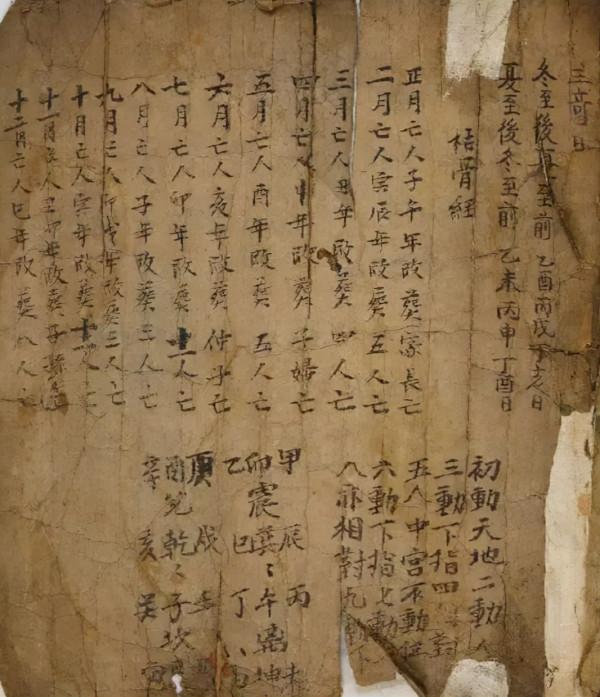 三奇日
冬至後夏至前 乙酉丙戌丁亥日
夏至後冬至前 乙未丙申丁酉日
枯骨経
正月亡人子午年改葬家長亡
二月亡人寅辰年改葬 五人亡
三月亡人丑年改葬 四人亡
四月亡人申年改葬 子婦亡
五月亡人酉年改葬 五人亡
六月亡人亥年改葬 仲子亡
七月亡人卯年改葬 二人亡
八月亡人子年改葬三人亡
九月亡人卯戌年改葬三人亡
十月亡人寅年改葬 人亡
十一月亡人丑卯年改葬子孫
十二月亡人巳年改葬八人亡
初動天地二動人
三動下指四 對
五八中宮不動位
六動下指七動
八亦相對九動下
甲 辰 丙 未
卯震巽〻午离坤
乙 巳 丁
庚 戌 壬
酉兌乾〻子坎
辛 亥 癸 寅